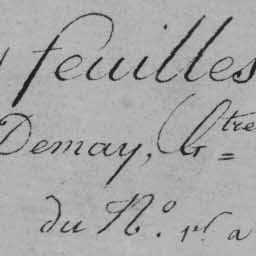 feuilles
Demay, G^tre=
du N.° 1er a